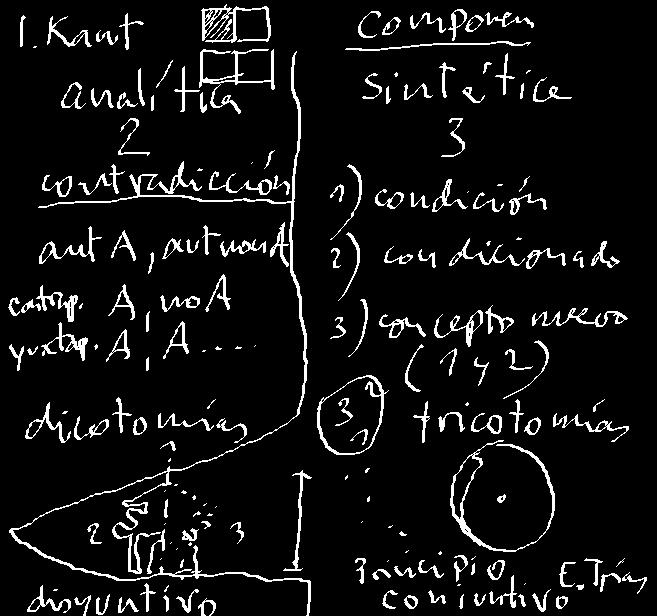 I. Kant
analítica
2
contradicción
aut A, aut non A
contrap. A, no A
yuxtap. A, A....
dicotomías
2 3
disyuntivo
componen
sintética
3
1) condición
2) condicionado
3) concepto nuevo
(1 y 2)
3 2 1
tricotomías
Principio E. Trías
conjuntivo